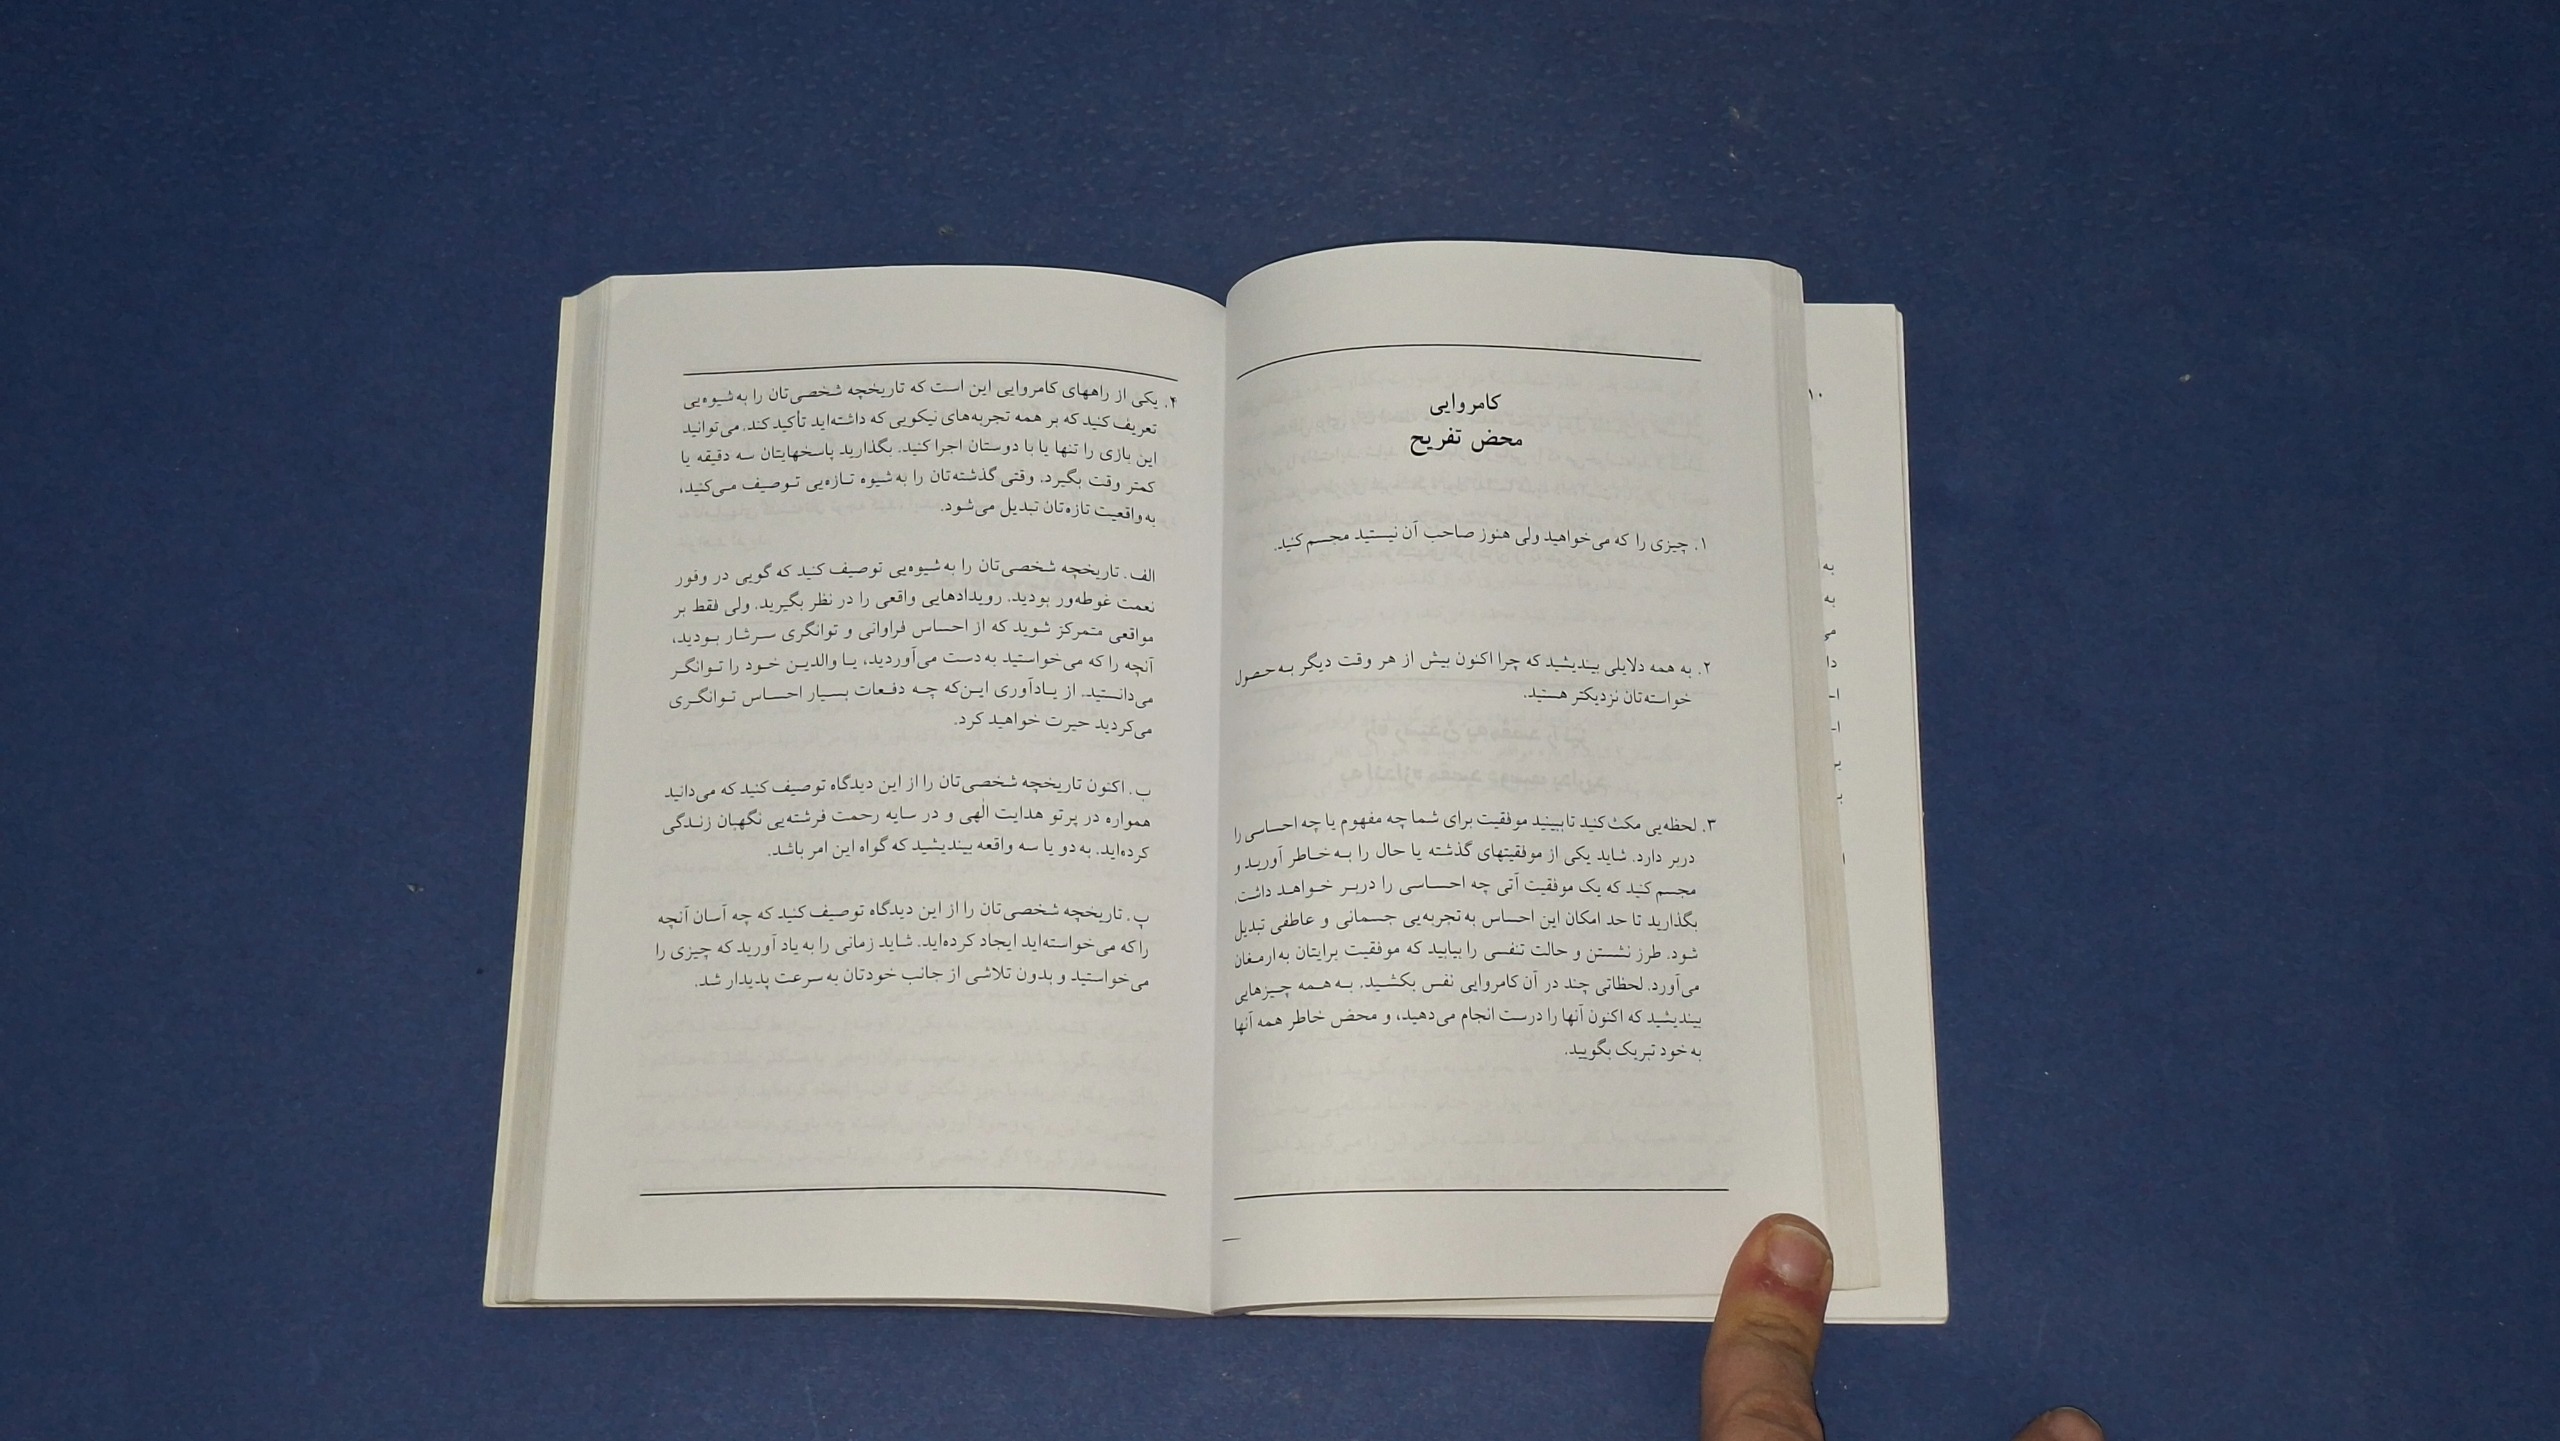 کامروایی
محض تفریح
۱. چیزی را که می‌خواهید ولی هنوز صاحب آن نیستید مجسم کنید.
۲. به همه دلایلی بیندیشید که چرا اکنون بیش از هر وقت دیگر به حصول
خواسته‌تان نزدیکتر هستید.
۳. لحظه‌یی مکث کنید تا ببینید موفقیت برای شما چه مفهوم یا چه احساسی را
دربر دارد. شاید یکی از موفقیتهای گذشته یا حال را به خاطر آورید و
مجسم کنید که یک موفقیت آتی چه احساسی را دربر خواهد داشت.
بگذارید تا حد امکان این احساس به تجربه‌یی جسمانی و عاطفی تبدیل
شود. طرز نشستن و حالت تنفسی را بیابید که موفقیت برایتان به ارمغان
می‌آورد. لحظاتی چند در آن کامروایی نفس بکشید. به همه چیزهایی
بیندیشید که اکنون آنها را درست انجام می‌دهید، و محض خاطر همه آنها
به خود تبریک بگویید.
۴. یکی از راههای کامروایی این است که تاریخچه شخصی‌تان را به شیوه‌یی
تعریف کنید که بر همه تجربه‌های نیکویی که داشته‌اید تأکید کند. می‌توانید
این بازی را تنها یا با دوستان اجرا کنید. بگذارید پاسخهایتان سه دقیقه یا
کمتر وقت بگیرد. وقتی گذشته‌تان را به شیوه تازه‌یی توصیف می‌کنید،
به واقعیت تازه‌تان تبدیل می‌شود.
الف. تاریخچه شخصی‌تان را به شیوه‌یی توصیف کنید که گویی در وفور
نعمت غوطه‌ور بودید. رویدادهایی واقعی را در نظر بگیرید. ولی فقط بر
مواقعی متمرکز شوید که از احساس فراوانی و توانگری سرشار بودید،
آنچه را که می‌خواستید به دست می‌آوردید، یا والدین خود را توانگر
می‌دانستید. از یادآوری این‌که چه دفعات بسیار احساس توانگری
می‌کردید حیرت خواهید کرد.
ب. اکنون تاریخچه شخصی‌تان را از این دیدگاه توصیف کنید که می‌دانید
همواره در پرتو هدایت الٰهی و در سایه رحمت فرشته‌یی نگهبان زندگی
کرده‌اید. به دو یا سه واقعه بیندیشید که گواه این امر باشد.
پ. تاریخچه شخصی‌تان را از این دیدگاه توصیف کنید که چه آسان آنچه
را که می‌خواسته‌اید ایجاد کرده‌اید. شاید زمانی را به یاد آورید که چیزی را
می‌خواستید و بدون تلاشی از جانب خودتان به سرعت پدیدار شد.